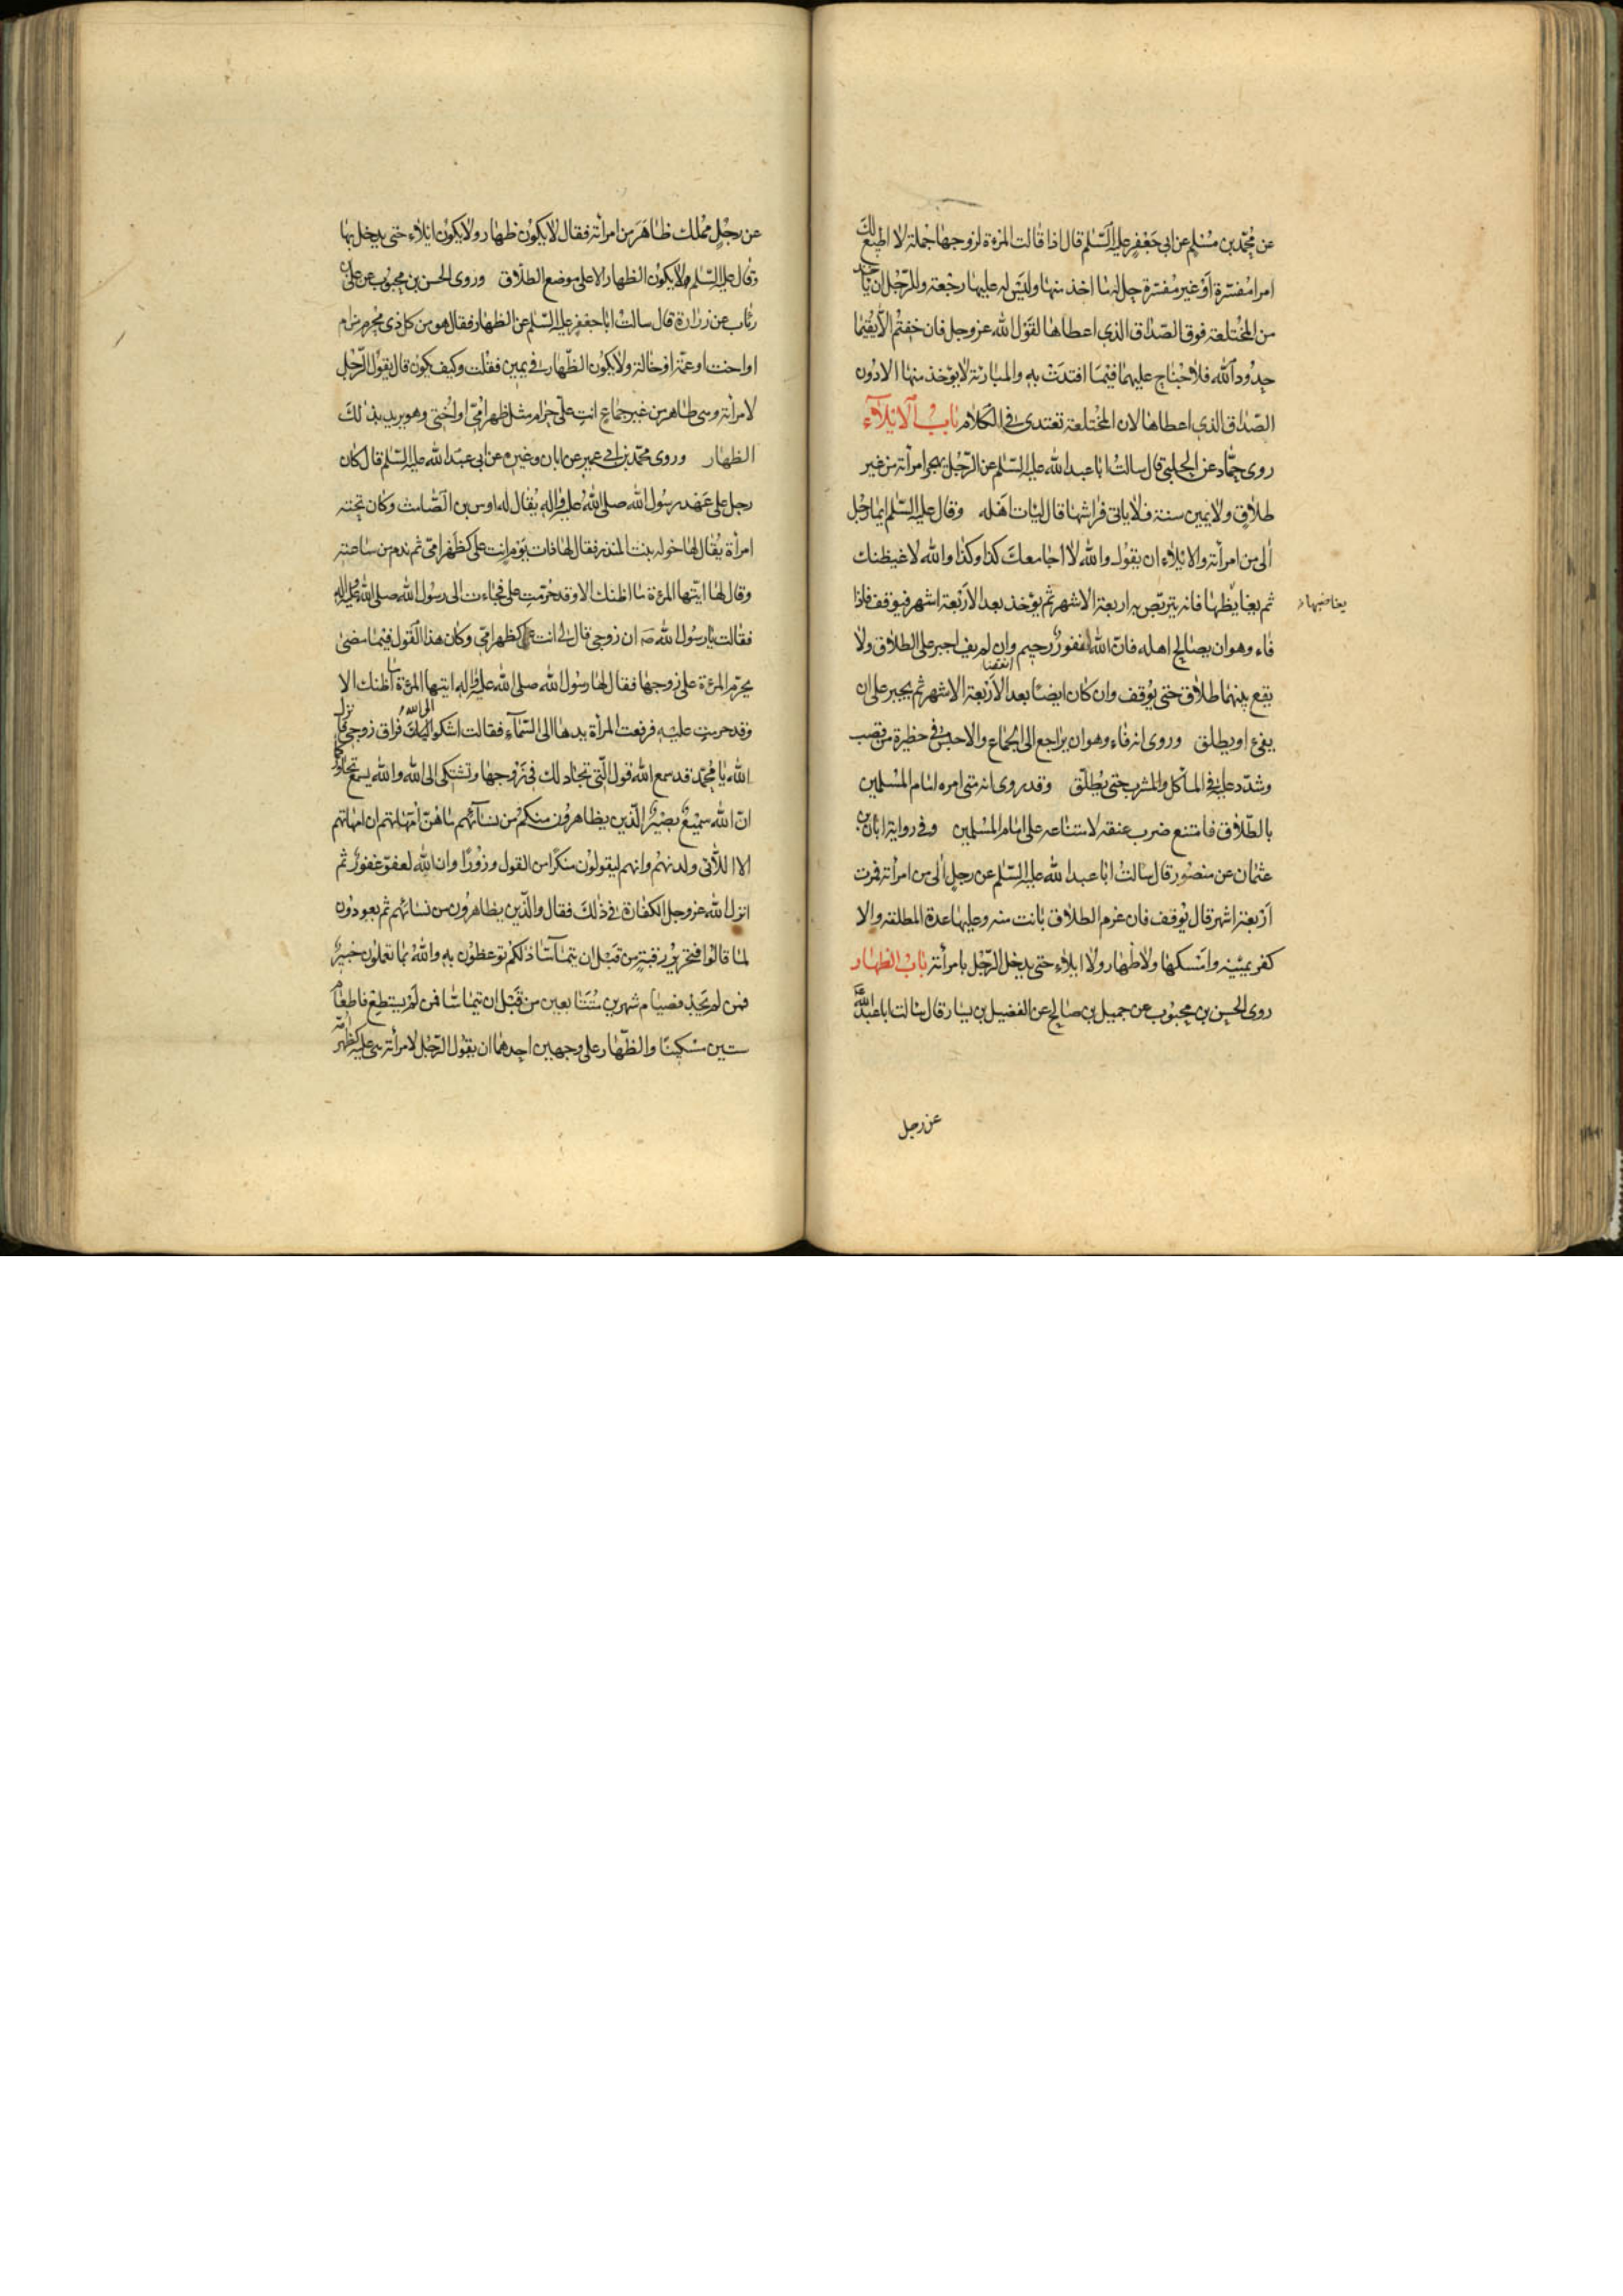 عن محمد بن مسلم عن ابى جعفر عليه السلم قال اذا قالت المرءة لزوجها جملة لا اطيع لك
امرا مفسرة او غير مفسرة حل له ما اخذ منها وليس له عليها رجعة وللرجل ان ياخذ
من المختلعة فوق الصداق الذى اعطاها لقول الله عز وجل فان خفتم الا يقيما
حدود الله فلا جناح عليهما فيما افتدت به والمبارئة لا يؤخذ منها الا دون
الصداق الذى اعطاها لان المختلعة تعتدى فى الكلام باب الايلاء
روى حماد عن الحلبى قال سالت ابا عبد الله عليه السلم عن الرجل يهجر امرأته من غير
طلاق ولا يمين سنة فلا ياتى فراشها قال ليات اهله وقال عليه السلم ايما رجل
الى من امرأته والايلاء ان يقول والله لا اجامعك كذا وكذا والله لاغيظنك
ثم يغايظها فانه يتربص به اربعة الاشهر ثم يؤخذ بعد الاربعة اشهر فيوقف فاذا
يغاضبها
فاء وهو ان يصالح اهله فان الله لغفور رحيم وان لم يف اجبر على الطلاق ولا
يقع بينهما طلاق حتى يوقف وان كان ايضا بعد الاربعة الاشهر ثم يجبر على ان
يفىء او يطلق وروى انه فاء وهو ان يراجع الى الجماع والا حبس فى حظيرة من قصب
وشدد عليه فى المأكل والمشرب حتى يطلق وقد روى انه متى امره امام المسلمين
بالطلاق فامتنع ضرب عنقه لامتناعه على امام المسلمين وفى رواية ابان بن
عثمان عن منصور قال سالت ابا عبد الله عليه السلم عن رجل الى من امرأته فمرت
اربعة اشهر قال يوقف فان عزم الطلاق بانت منه وعليها عدة المطلقة والا
كفر يمينه وامسكها ولا ظهار ولا ايلاء حتى يدخل الرجل بامرأته باب الظهار
روى الحسن بن محبوب عن جميل بن صالح عن الفضيل بن يسار قال سالت ابا عبد الله
عن رجل
عن رجل مملك ظاهر من امرأته فقال لا يكون ظهار ولا يكون ايلاء حتى يدخل بها
وقال عليه السلم ولا يكون الظهار الا على موضع الطلاق وروى الحسن بن محبوب عن على بن
رئاب عن زرارة قال سالت ابا جعفر عليه السلم عن الظهار فقال هو من كل ذى محرم من ام
او اخت او عمة او خالة ولا يكون الظهار فى يمين فقلت وكيف يكون قال يقول الرجل
لامرأته وهى طاهر من غير جماع انت على حرام مثل ظهر امى او اختى وهو يريد بذلك
الظهار وروى محمد بن ابى عمير عن ابان وغيره عن ابى عبد الله عليه السلم قال كان
رجل على عهد رسول الله صلى الله عليه واله يقال له اوس بن الصامت وكان تحته
امرأة يقال لها خوله بنت المنذر فقال لها ذات يوم انت على كظهر امى ثم ندم من ساعته
وقال لها ايتها المرءة ما اظنك الا وقد حرمت على فجاءت الى رسول الله صلى الله عليه واله
فقالت يا رسول الله ص ان زوجى قال لى انت على كظهر امى وكان هذا القول فيما مضى
يحرم المرءة على زوجها فقال لها رسول الله صلى الله عليه واله ايتها المرءة ما اظنك الا
وقد حرمت عليه فرفعت المرأة يدها الى السماء فقالت اشكو اليك فراق زوجى فانزل
الله يا محمد قد سمع الله قول التى تجادلك فى زوجها وتشتكى الى الله والله يسمع تحاوركما
ان الله سميع بصير الذين يظاهرون منكم من نسائهم ما هن امهاتهم ان امهاتهم
الا اللائى ولدنهم وانهم ليقولون منكرا من القول وزورا وان الله لعفو غفور ثم
انزل الله عز وجل الكفارة فى ذلك فقال والذين يظاهرون من نسائهم ثم يعودون
لما قالوا فتحرير رقبة من قبل ان يتماسا ذلكم توعظون به والله بما تعملون خبير
فمن لم يجد فصيام شهرين متتابعين من قبل ان يتماسا فمن لم يستطع فاطعام
ستين مسكينا والظهار على وجهين احدهما ان يقول الرجل لامرأته هى عليه كظهر